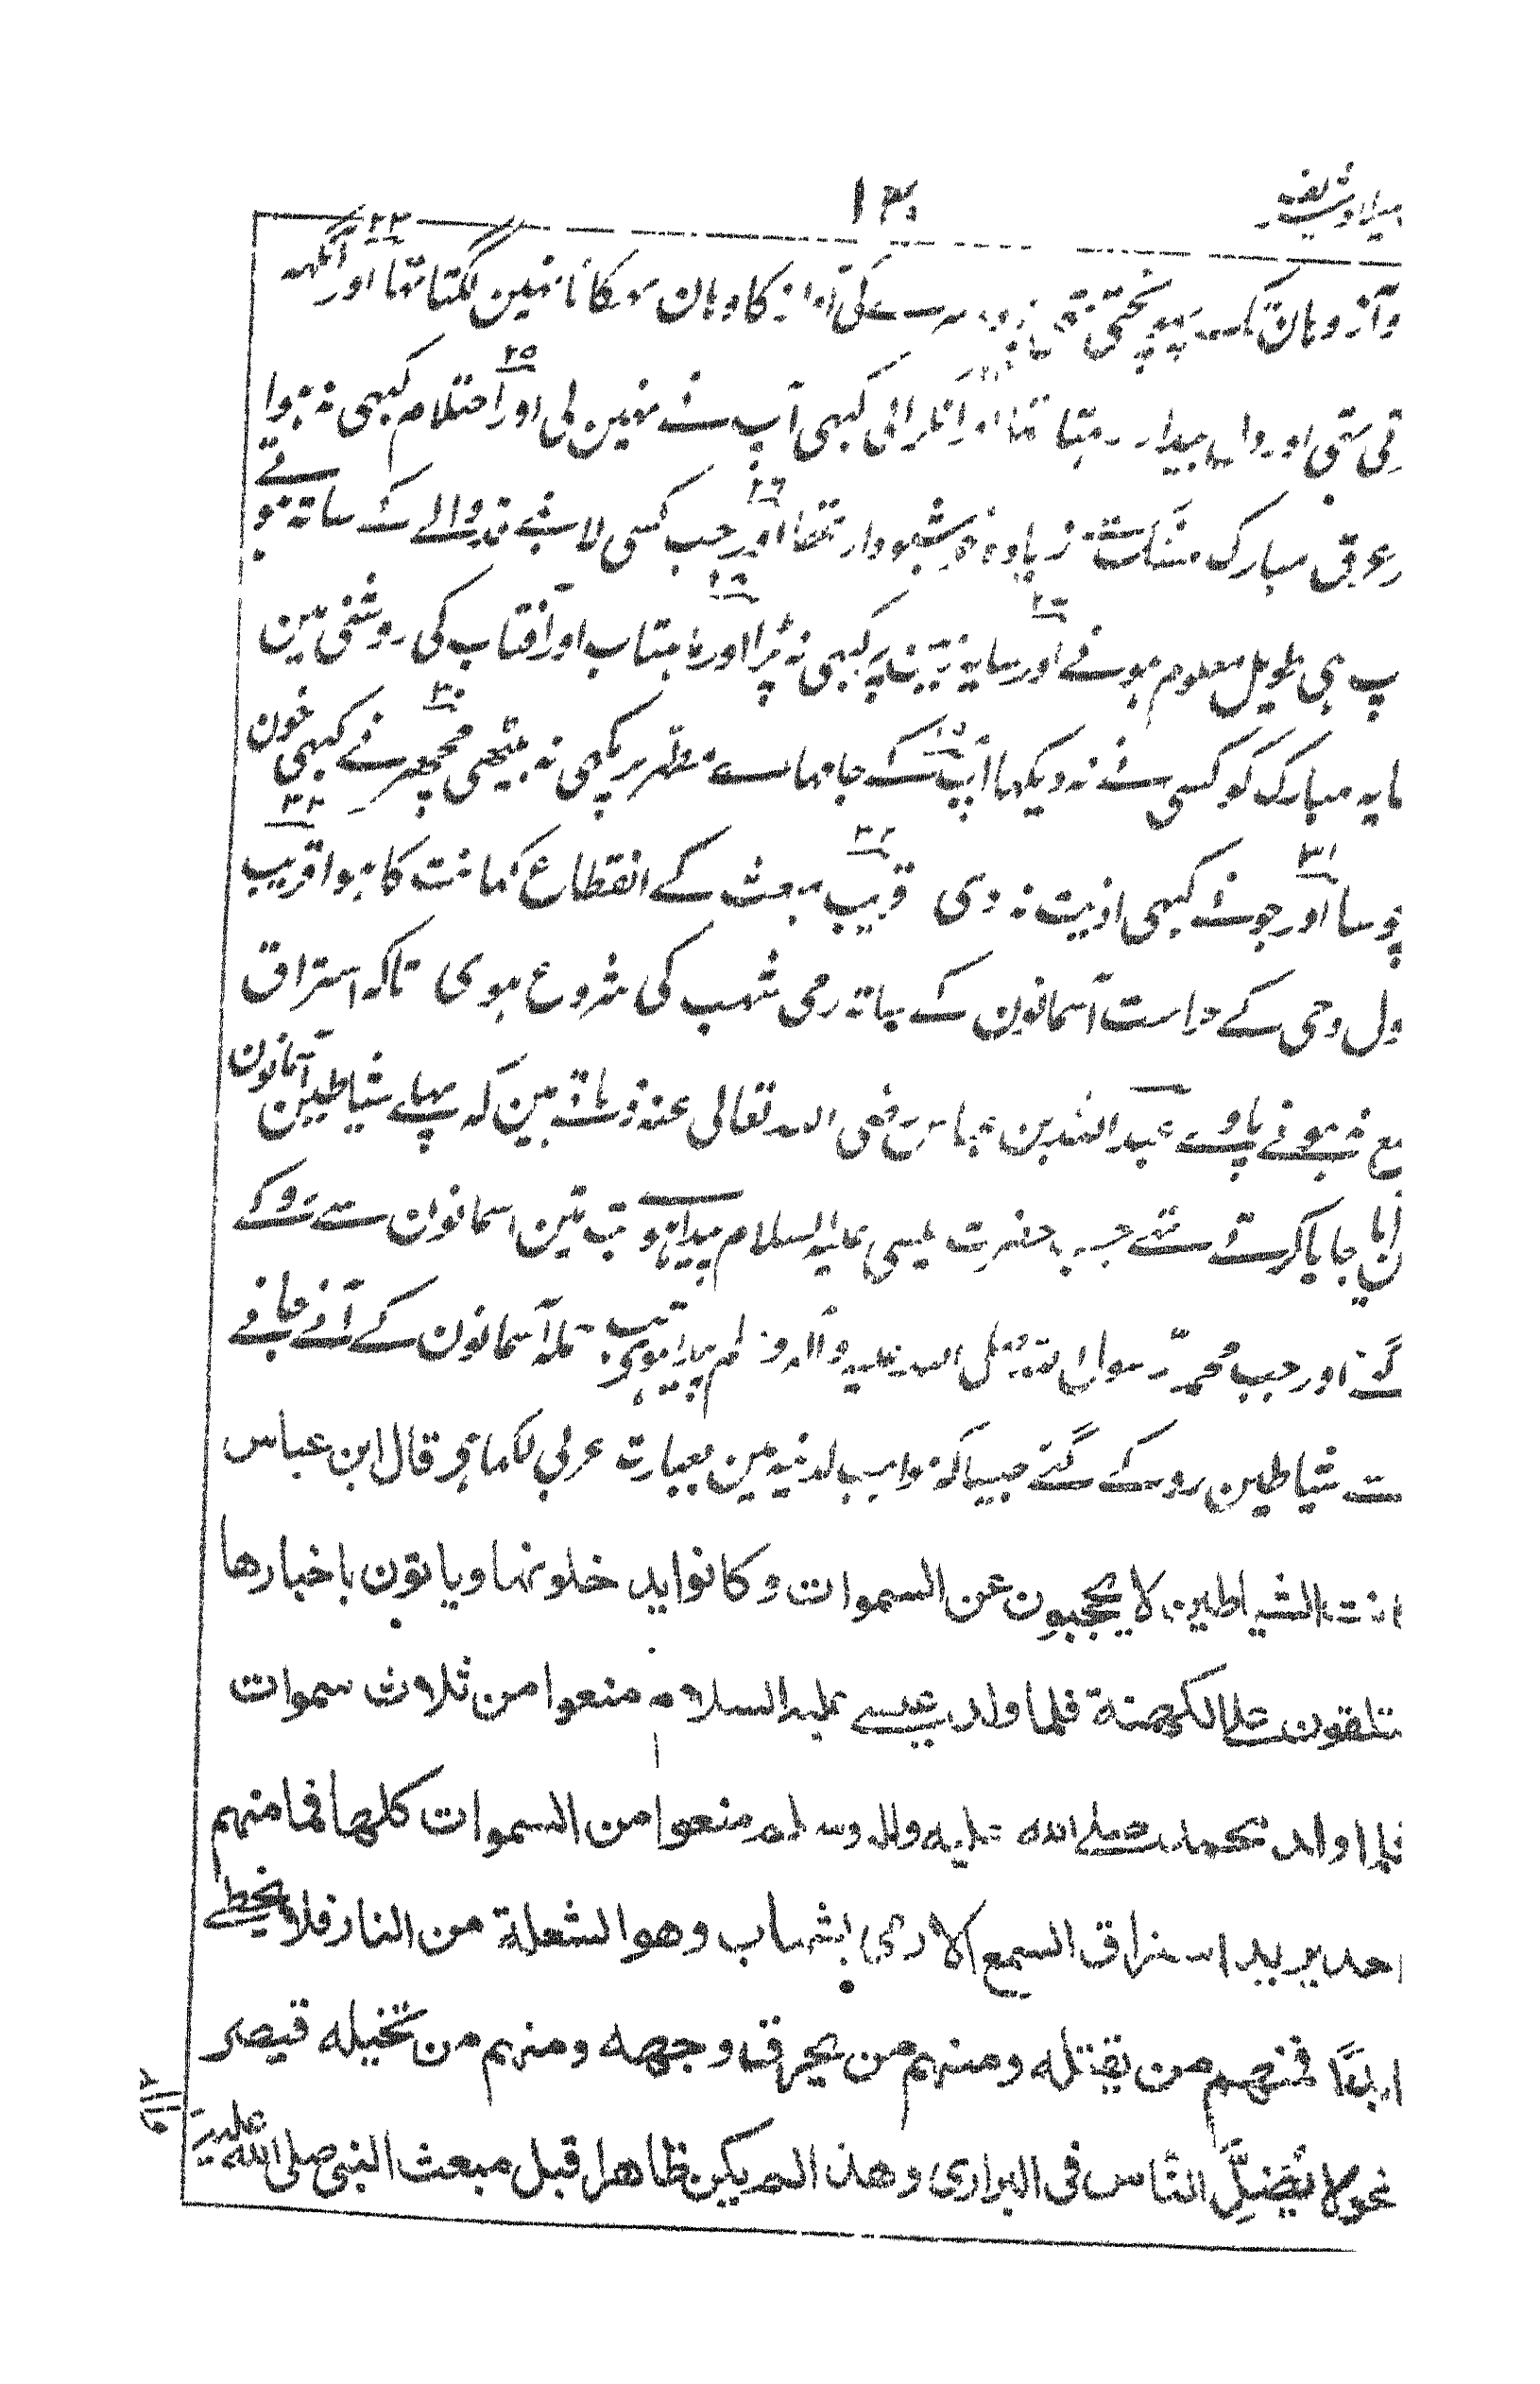 میلاد شریف
وآز وہان تک پہونچتی تھی دوسرے کی آواز کا وہان ٹھکانا نہین لگتا تھا اور آنکھہ
تی تھی اور دل بیدار رہتا تھا اور انگڑائی کبھی آپ نے نہین لی اور احتلام کبھی نہ ہوا
رعرق مبارک مشک سے زیادہ خوشبودار تھا اور جب کسی لانبے قد والے کے ساتہ ہوتے
پ ہی طویل معلوم ہوتے اور سایہ زمین پر کبھی نہ پڑا اور ماہتاب اور آفتاب کی روشنی مین
مایہ مبارک کو کسی نے نہ دیکھا آپ کے جامہاے مطہر پر مکھی نہ بیٹھی مچھر نے کبھی خون
چوسا اور جون نے کبھی اذیت نہ دی قریب مبعث کے انقطاع کہانت کا ہوا قریب
ول وحی کے حراست آسمانون کے ساتہ رمی شہب کی شروع ہوی تاکہ استراق
مع نہ ہونے پاوے عبد اللہ بن عباس رضی اللہ تعالی عنہ فرماتے ہین کہ پہلے شیاطین آسمانون
ن آیا جایا کرتے تھے جب حضرت عیسی علیہ السلام پیدا ہوے تب تین اسمانوان سے روکے
گئے اور جب محمد رسول اللہ صلی اللہ علیہ والہ وسلم پیدا ہوی تب جملہ آسمانون کے آنے جانے
سے شیاطین روکے گئے جیسا کہ مواہب لدنیہ مین بعبارت عربی لکھا ہی قال ابن عباس
انت الشیاطین لا یحجبون عن السموات وکانوا یدخلونها ویاتون باخبارها
تلقون علی الکهنة فلما ولد عیسے علیه السلام منعوا من ثلاث سموات
فلما ولد محمد صلے الله علیه واله وسلم منعوا من السموات کلها فما منهم
احد یرید استراق السمع الا رمی بشهاب وهو الشعلة من النار فلا یخطے
ابدًا فمنهم من یقتله ومنهم من یحرق وجهه ومنهم من تخیله فیصیر
غولا یضلّ الناس فی البراری وهذا لم یکن ظاهرا قبل مبعث النبی صلی الله علیه
واله